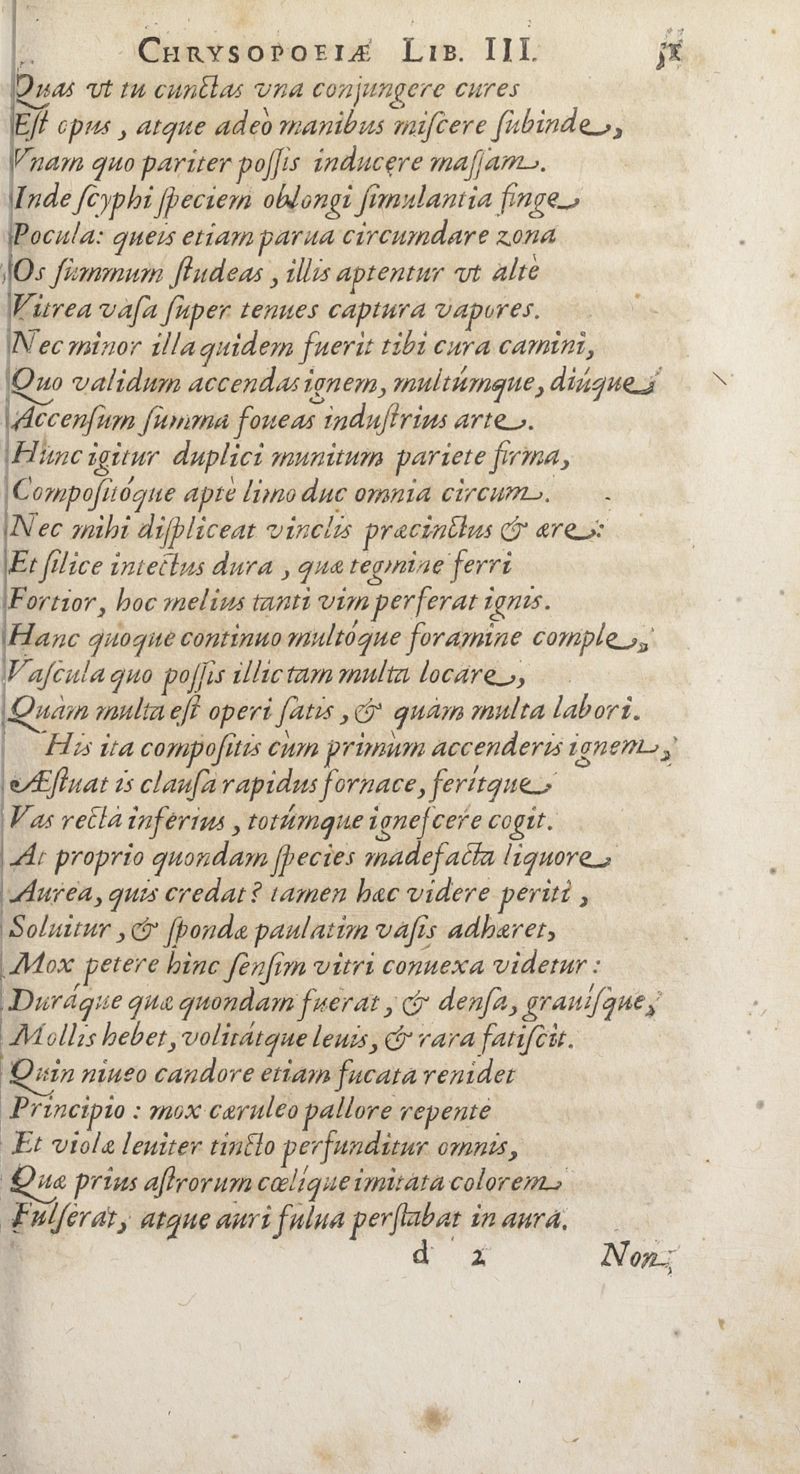 CHRYSOPOEIÆ LIB. III.
Quas vt tu cunctas vna conjungere cures
Eſt opus, atque adeò manibus miſcere ſubinde,
Vnam quo pariter poſſis inducere maſſam.
Inde ſcyphi ſpeciem oblongi ſimulantia finge
Pocula: queis etiam parua circumdare zona
Os ſummum ſtudeas, illis aptentur vt alte
Vitrea vaſa ſuper tenues captura vapores.
Nec minor illa quidem fuerit tibi cura camini,
Quo validum accendas ignem, multúmque, diúque
Accenſum ſumma foueas induſtrius arte.
Hunc igitur duplici munitum pariete firma,
Compoſitóque aptè limo duc omnia circum.
Nec mihi diſpliceat vinclis præcinctus & ære:
Et ſilice intectus dura, quæ tegmine ferri
Fortior, hoc melius tanti vim perferat ignis.
Hanc quoque continuo multóque foramine comple,
Vaſcula quo poſſis illic tam multa locare,
Quàm multa eſt operi ſatis, & quàm multa labori.
His ita compoſitis cùm primùm accenderis ignem,
Æſtuat is clauſa rapidus fornace, ferítque
Vas rectà inferius, totúmque igneſcere cogit.
At proprio quondam ſpecies madefacta liquore
Aurea, quis credat? tamen hæc videre periti,
Soluitur, & ſpondæ paulatim vaſis adhæret,
Mox petere hinc ſenſim vitri conuexa videtur:
Duráque quæ quondam fuerat, & denſa, grauiſque,
Mollis hebet, volitátque leuis, & rara fatiſcit.
Quin niueo candore etiam fucata renidet
Principio: mox cæruleo pallore repentè
Et violæ leuiter tincto perfunditur omnis,
Quæ prius aſtrorum cœlíque imitata colorem
Fulſerat, atque auri fulua perſtabat in aura.
d 2 Non